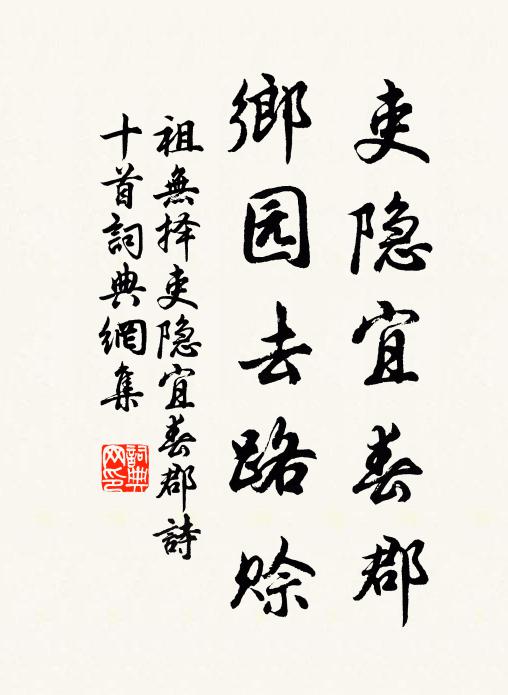 吏隐宜春郡
鄉园去路赊
祖無择吏隐宜春郡詩
十首詞典網集
詞典
网印